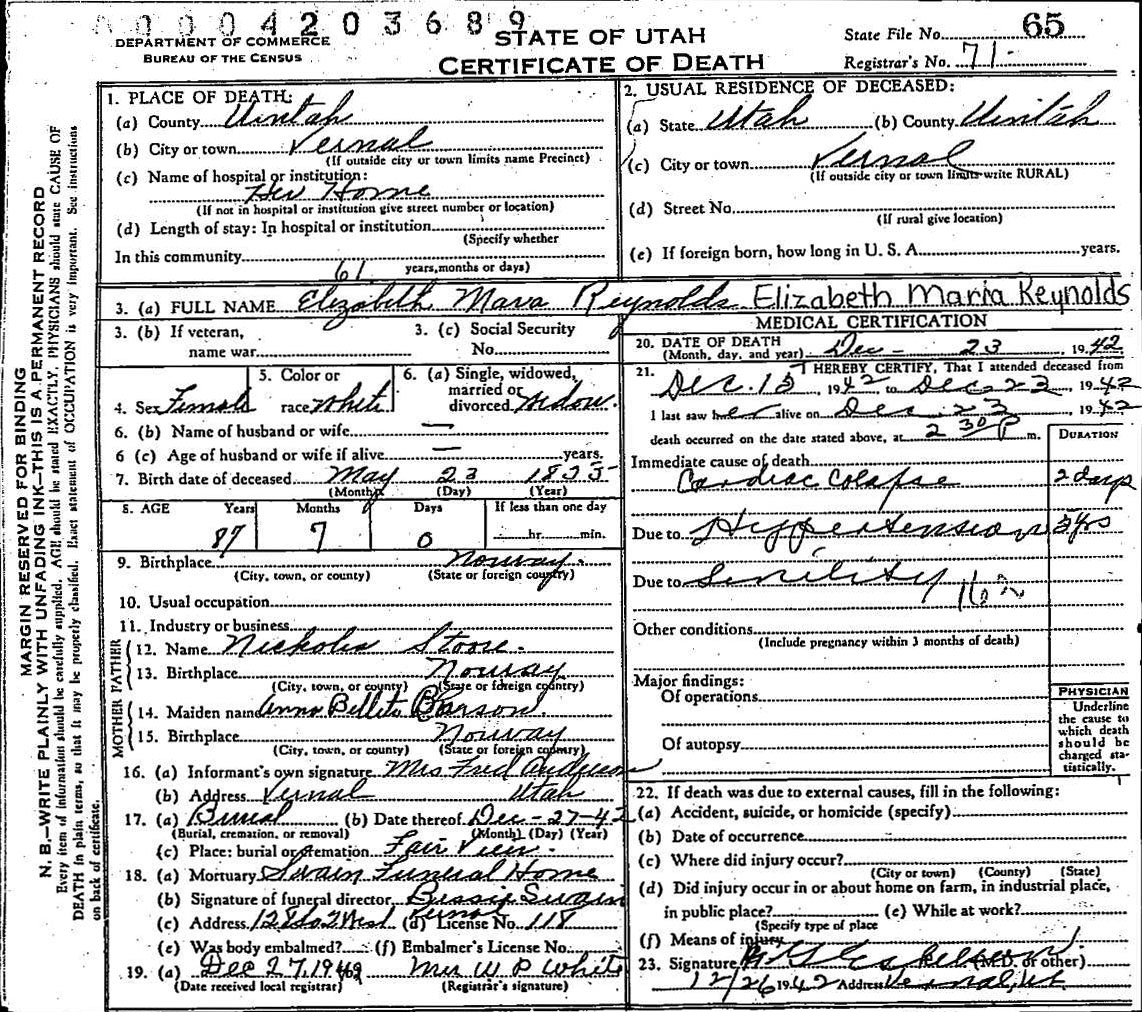 0004203689
DEPARTMENT OF COMMERCE
BUREAU OF THE CENSUS
STATE OF UTAH
CERTIFICATE OF DEATH
State File No. 65
Registrar's No. 71
MARGIN RESERVED FOR BINDING
N. B.—WRITE PLAINLY WITH UNFADING INK—THIS IS A PERMANENT RECORD
Every item of information should be carefully supplied. AGE should be stated EXACTLY. PHYSICIANS should state CAUSE OF
DEATH In plain terms, so that it may be properly classified. Exact statement of OCCUPATION is very important. See instructions
on back of certificate.
1. PLACE OF DEATH:
(a) County Uintah
(b) City or town Vernal
(If outside city or town limits name Precinct)
(c) Name of hospital or institution:
Her Home
(If not in hospital or institution give street number or location)
(d) Length of stay: In hospital or institution
(Specify whether
In this community 61
years, months or days)
2. USUAL RESIDENCE OF DECEASED:
(a) State Utah (b) County Uintah
(c) City or town Vernal
(If outside city or town limits write RURAL)
(d) Street No.
(If rural give location)
(e) If foreign born, how long in U. S. A. years.
3. (a) FULL NAME Elizabeth Maria Reynolds Elizabeth Maria Reynolds
3. (b) If veteran,
name war
3. (c) Social Security
No.
4. Sex Female
5. Color or
race White
6. (a) Single, widowed,
married or
divorced widow.
6. (b) Name of husband or wife —
6 (c) Age of husband or wife if alive — years.
7. Birth date of deceased May 23 1855
(Month) (Day) (Year)
8. AGE Years Months Days If less than one day
87 7 0 hr. min.
9. Birthplace Norway.
(City, town, or county) (State or foreign country)
10. Usual occupation
11. Industry or business
FATHER
12. Name
13. Birthplace Norway
(City, town, or county) (State or foreign country)
MOTHER
14. Maiden name Anna
15. Birthplace Norway
(City, town, or county) (State or foreign country)
16. (a) Informant's own signature Mrs Fred Anderson
(b) Address Vernal Utah
17. (a) Burial (b) Date thereof Dec-27-42
(Burial, cremation, or removal) (Month) (Day) (Year)
(c) Place: burial or cremation Fair View.
18. (a) Mortuary Swain Funeral Home
(b) Signature of funeral director Bessie Swain
(c) Address 128 So 2 West Vernal (d) License No. 118
(e) Was body embalmed? (f) Embalmer's License No.
19. (a) Dec 27, 1942 Mrs W P White
(Date received local registrar) (Registrar's signature)
MEDICAL CERTIFICATION
20. DATE OF DEATH
(Month, day, and year) Dec - 23, 1942
21. I HEREBY CERTIFY, That I attended deceased from
Dec. 15, 1942 to Dec. 23, 1942
I last saw her alive on Dec. 23, 1942
death occurred on the date stated above, at 2 30 P m.
DURATION
Immediate cause of death
Cardiac Colapse 2 days
Due to Hypertension 5 yrs
Due to Senility
Other conditions
(Include pregnancy within 3 months of death)
Major findings:
Of operations
Of autopsy
PHYSICIAN
Underline
the cause to
which death
should be
charged sta-
tistically.
22. If death was due to external causes, fill in the following:
(a) Accident, suicide, or homicide (specify)
(b) Date of occurrence
(c) Where did injury occur?
(City or town) (County) (State)
(d) Did injury occur in or about home on farm, in industrial place,
in public place? (e) While at work?
(Specify type of place
(f) Means of injury
23. Signature (M.D. or other)
12/26 1942 Address Vernal, Ut